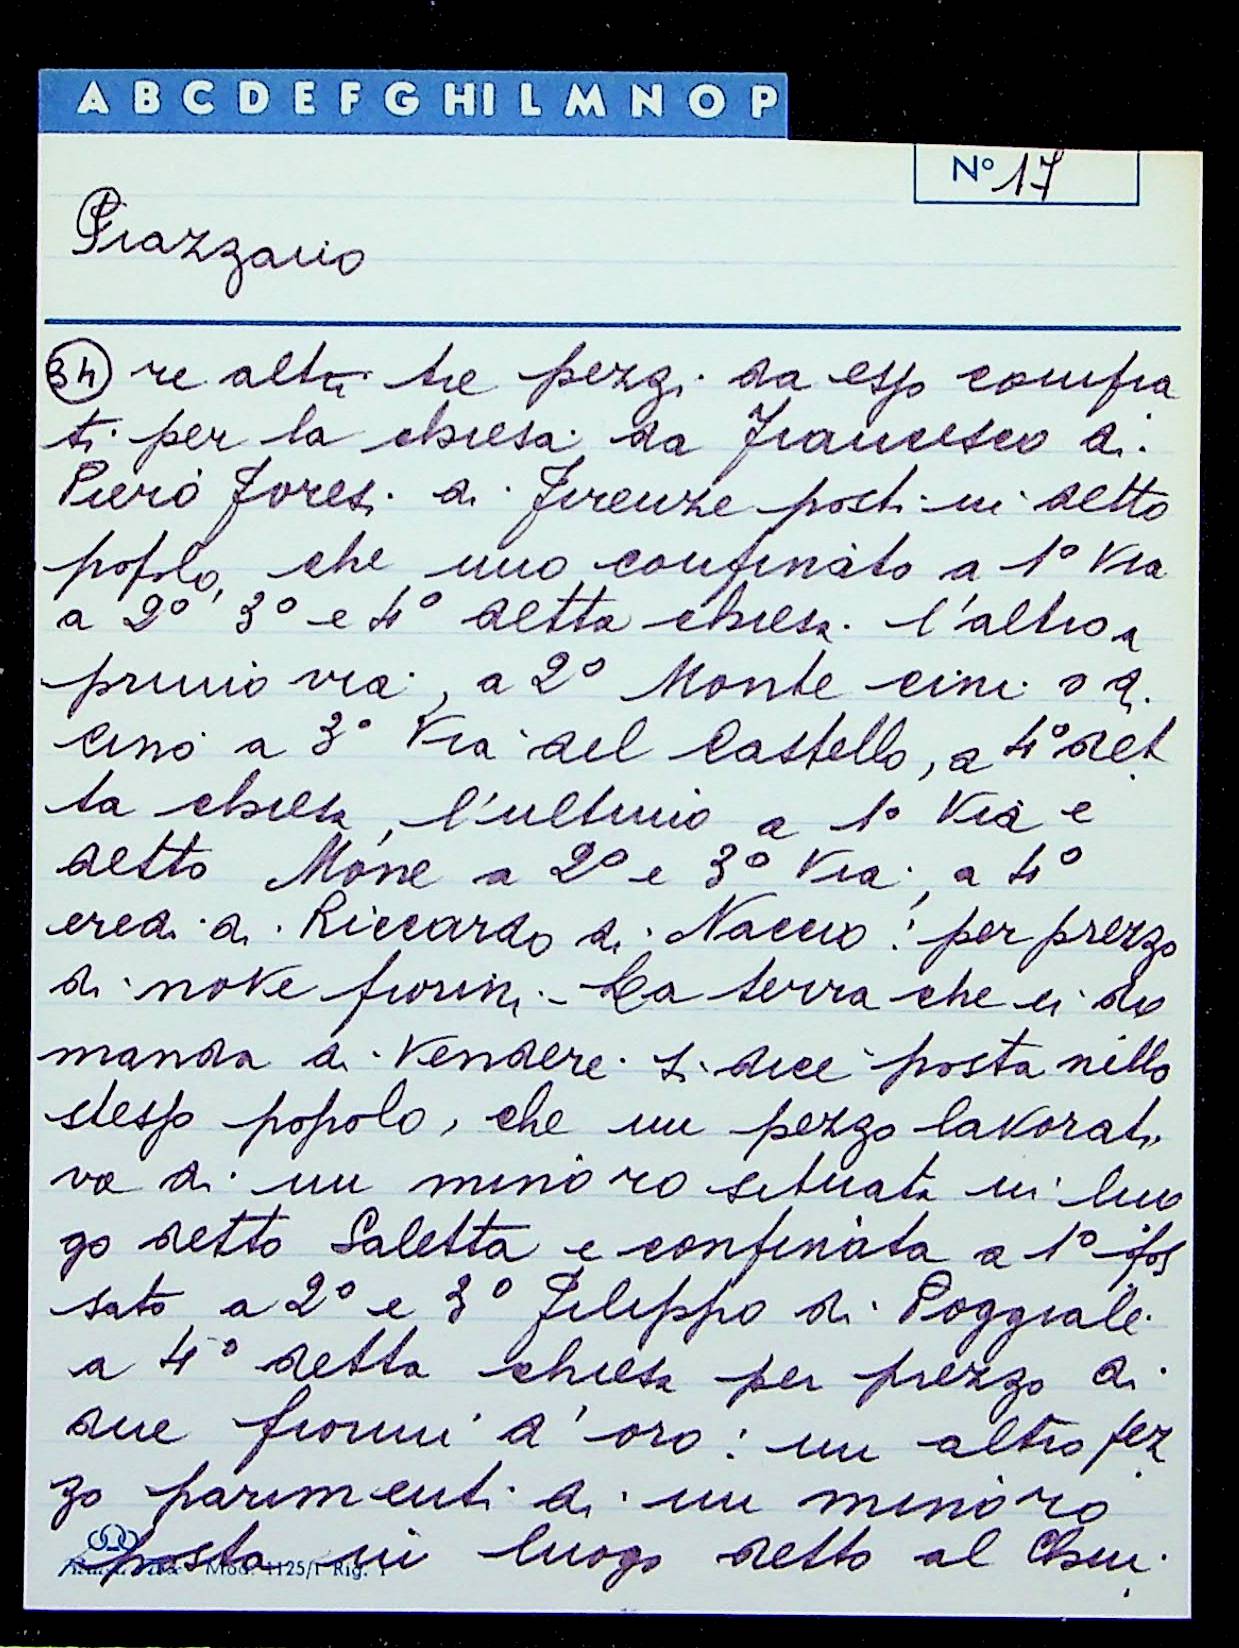 A B C D E F G HI L M N O P
N° 17
Piazzano
34 re altri tre pezzi da esso compra
ti per la chiesa da Francesco di
Piero Foresi di Firenze posti in detto
popolo, che uno confinato a 1° Via
a 2° 3° e 4° detta chiesa. l'altro a
primo via, a 2° Monte Cini o di
Cino a 3° Via del Castello, a 4° det
ta chiesa, l'ultimo a 1° Via e
detto Mone a 2° e 3° Via, a 4°
eredi di Riccardo di Naccio: per prezzo
di nove fiorini. - La terra che ci do
manda di vendere si dice posta nello
stesso popolo, che un pezzo lavorati
va di un minoro situata in luo
go detto Saletta e confinata a 1° fos
sato a 2° e 3° Filippo di Poggiale
a 4° detta chiesa per prezzo di
due fiorini d'oro: un altro pez
zo parimenti di un minoro
posta in luogo detto al Chiu
Mod. 1125/1 Rig. 1